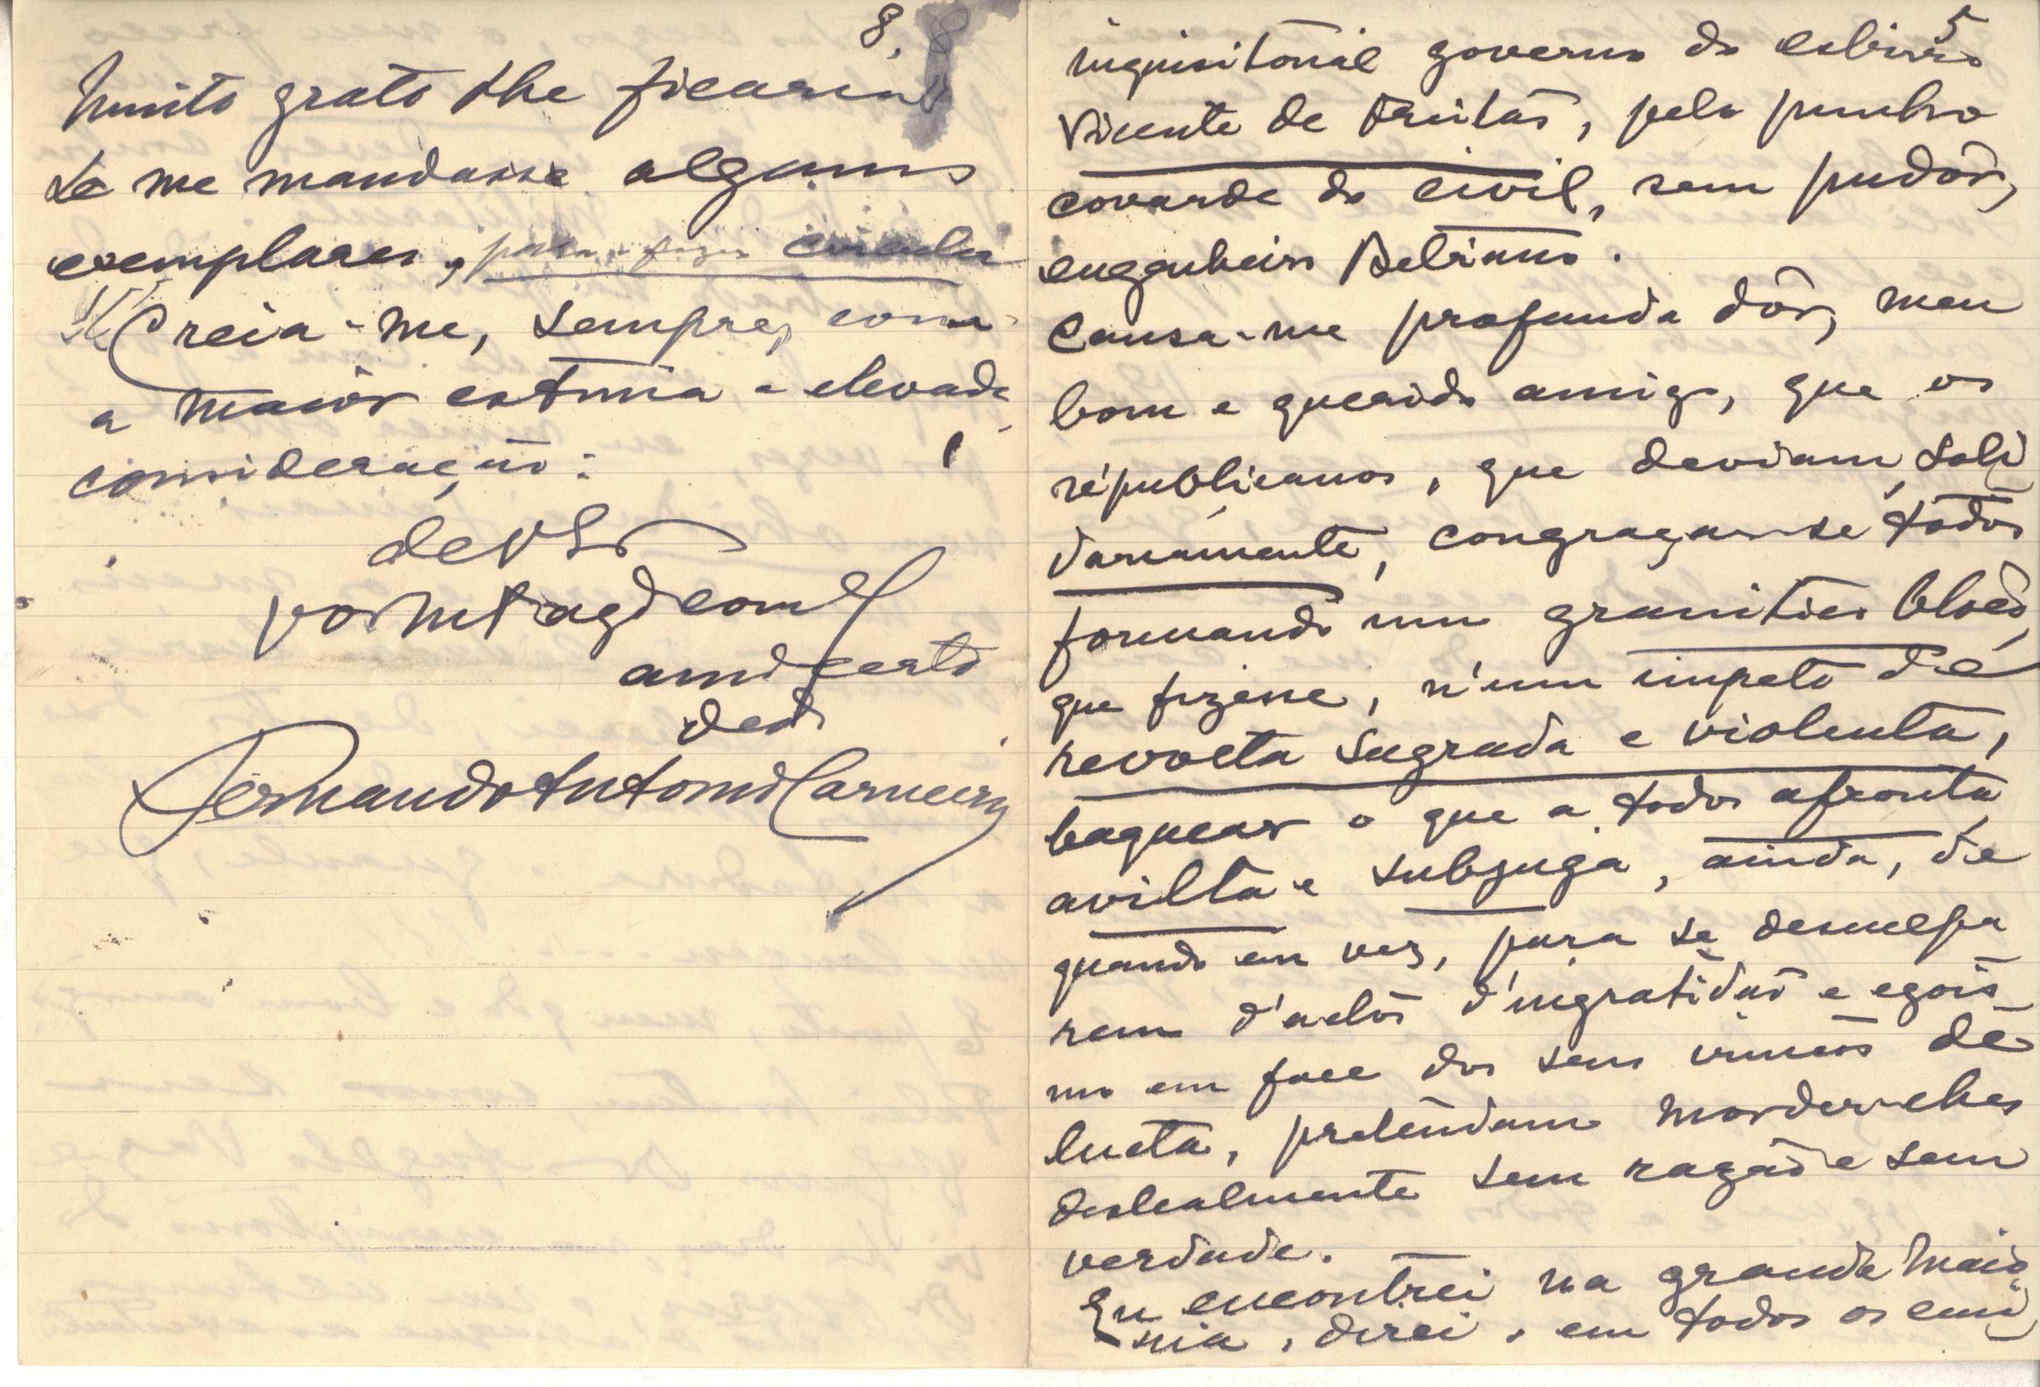 8.
Muito grato lhe ficaria
se me mandasse alguns
exemplares, para fazer circular
Creia-me, sempre, com
a maior estima e elevada
consideração:
de V.
amº certo
dedº
Fernando Antonio Carneiro
5
inquisitorial governo do esbirro
Vicente de Freitas, pelo punho
covarde do civil, sem pudôr,
engenheiro Bebiano.
Causa-me profunda dôr, meu
bom e querido amigo, que os
républicanos, que deviam, soli
dariamente, congraçar-se todos
formando um granitico bloco,
que fizesse, n'um impeto de
revolta sagrada e violenta,
baquear o que a todos afronta
avilta e subjuga, ainda, de
quando em vez, para se desculpa
rem d'actos d'ingratidão e egois
mo em face dos seus irmãos de
lucta, pretendam morder-lhes
deslealmente sem razão e sem
verdade.
Eu encontrei na grande maio
ria, direi, em todos os emi